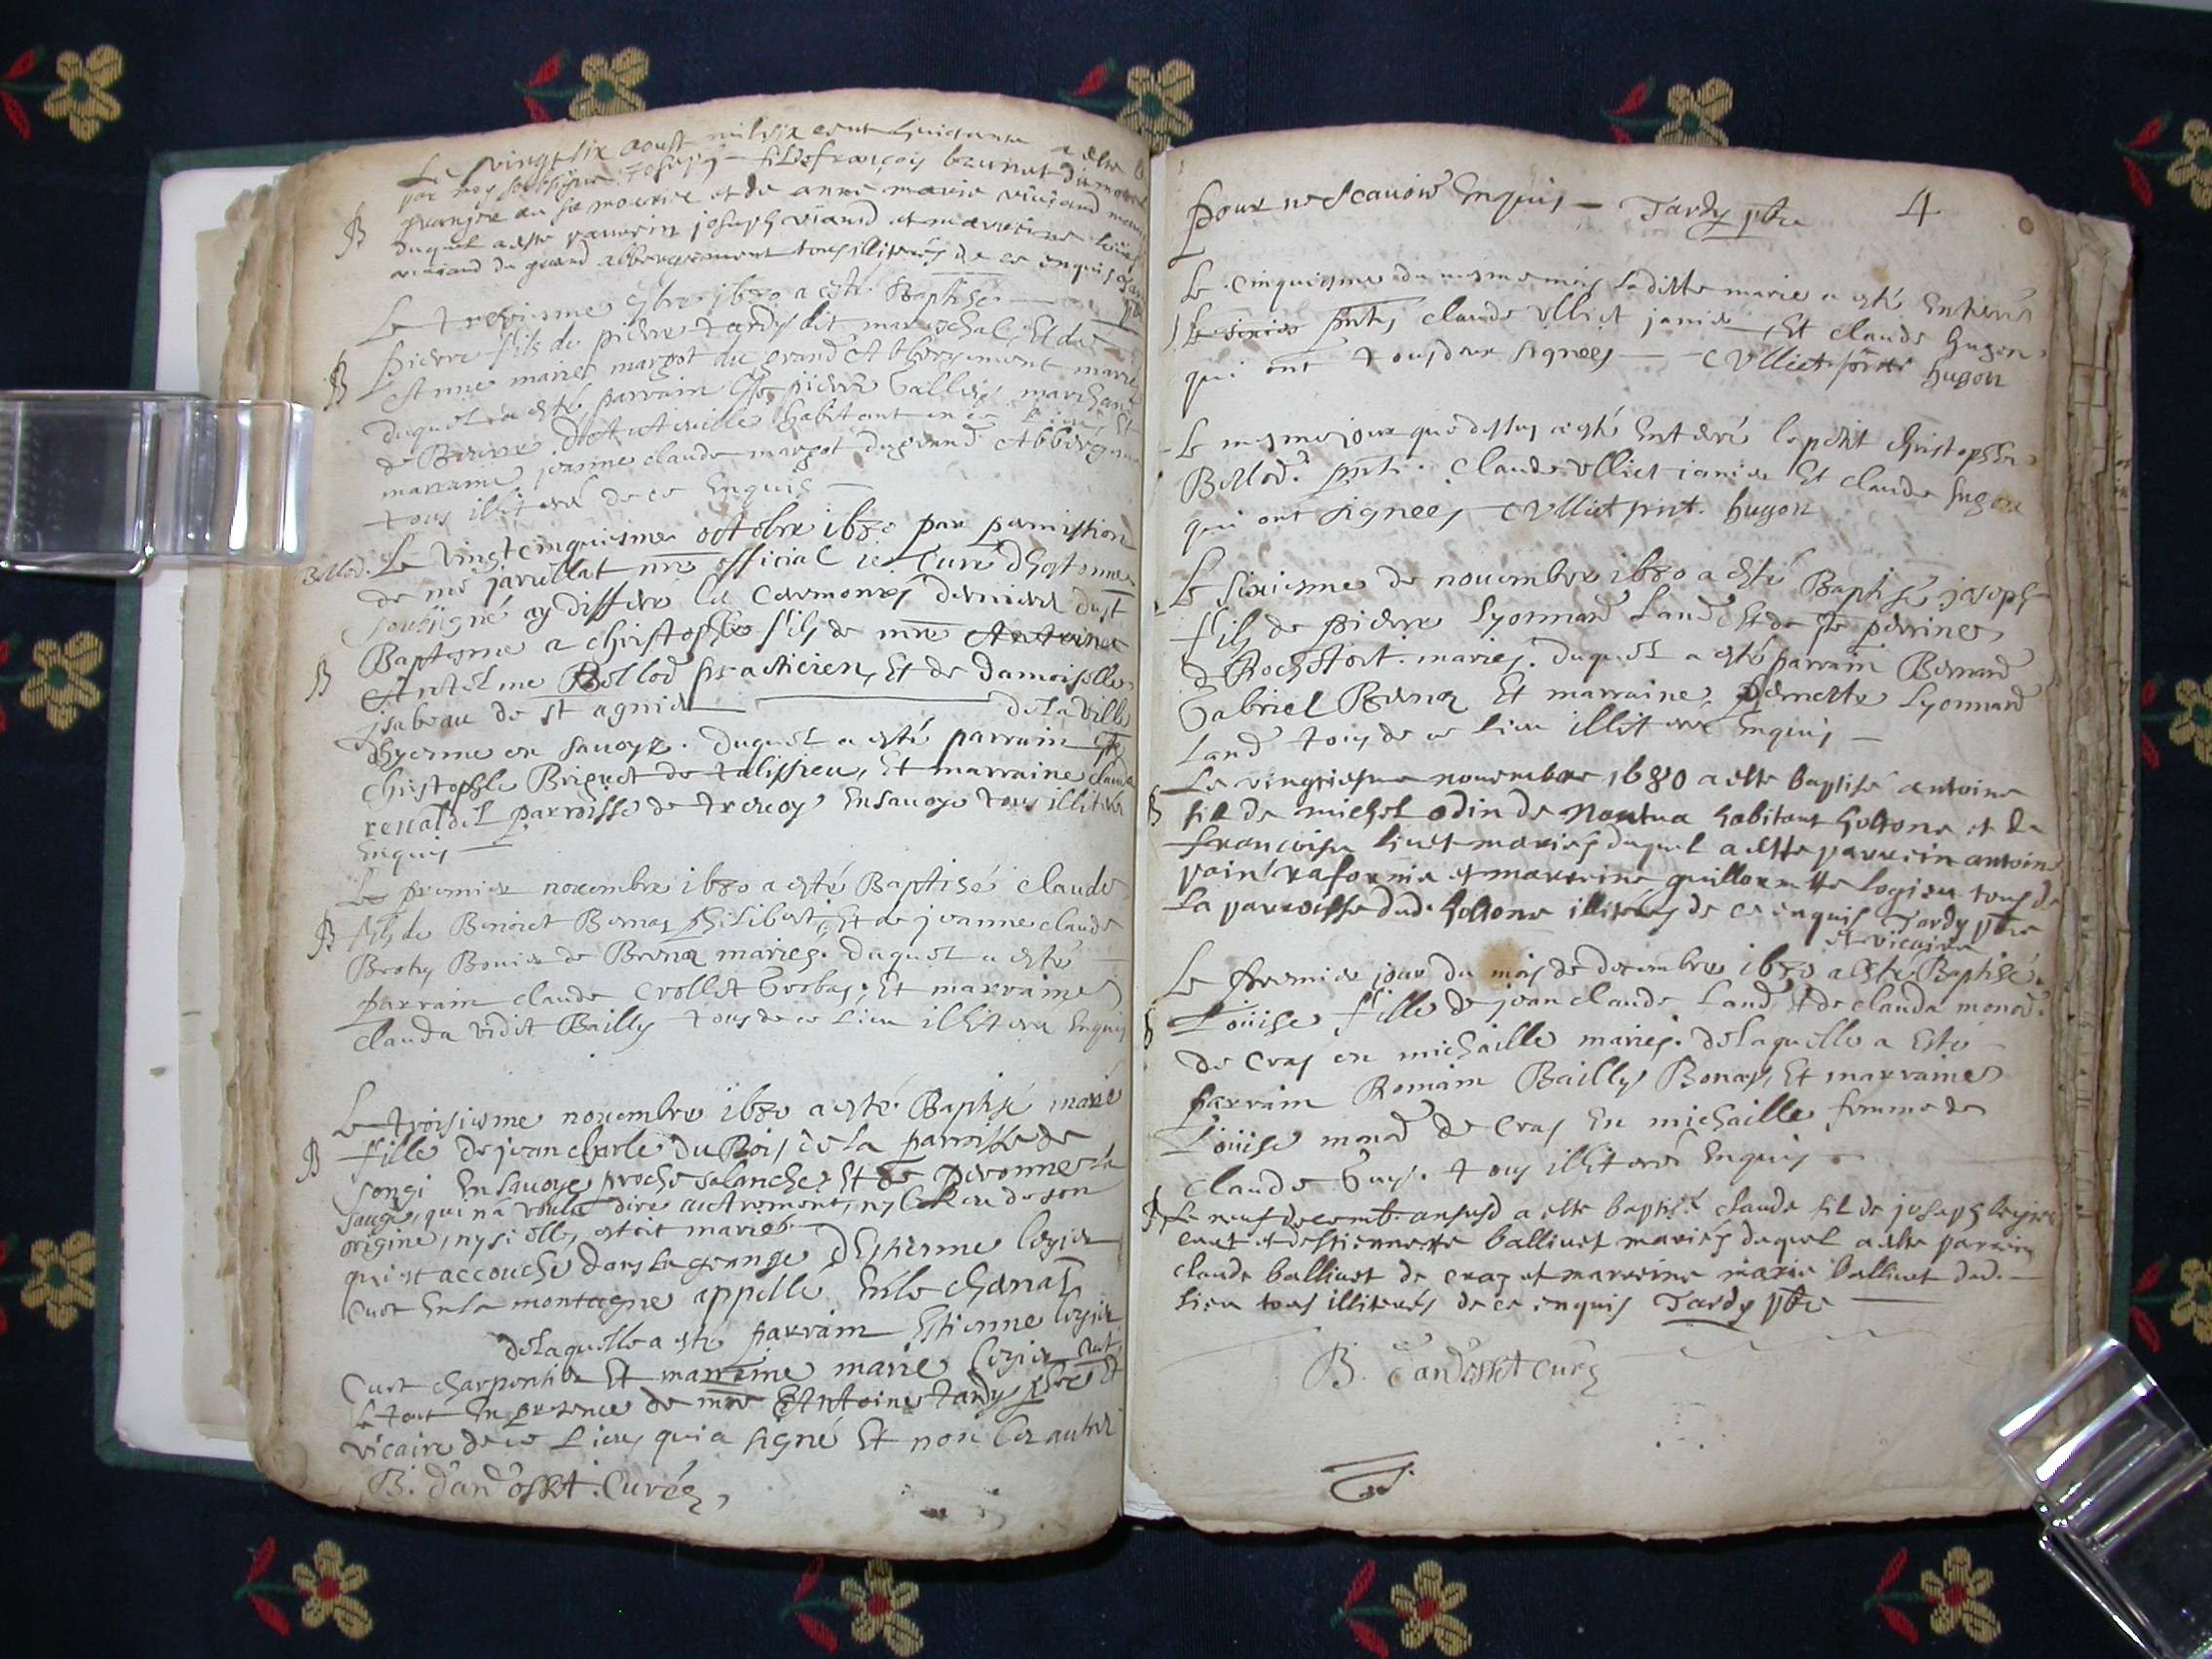 Le vingt six aoust mil six cent huictante a este b
par moy soubsigne Joseph fil de françois brunet du
granger au sr mourier et de anne marie viviand
B duquel a este parrein joseph viand et marreine
viviand du grand abbergement tous illiterés de ce enquis
Le 7bre 1680 a esté Baptisé
B pierre fils de pierre tardy dit mareschal, Et de
Anne marie margot du grand Abbergement mariés
duquel a esté parrain pierre marchand
de habitant en ce lieu, Et
marraine jeanne claude margot du grand Abbergem
tous illiteré de ce Enquis
Bellod. Le vingtcinquiesme octobre 1680 par permission
de mre javellat nre official Je Curé d'hostonne
soubsigné ay differé les Ceremonies derniere dust
Baptesme a christophle fils de mre Antoine
B Antelme Bellod practicien, Et de Damoiselle
jsabeau de st agnier de La ville
dhyenne en savoye. Duquel a esté parrain
christophle Briquet de talissieu, Et marraine claude
renaldel parroisse de En savoye tous illiteré
Enquis
Le premier novembre 1680 a esté Baptisé claude
B fils de Benoict Bernaz philibert, Et de jeanne claude
Broty Bouier de Brenaz mariés. Duquel a esté
parrain claude Crollet Et marraine
clauda videt Bailly tous de ce Lieu illiteré Enquis
Le troisiesme novembre 1680 a esté Baptisé marie
B fille de jean charle Du Bois de La parroisse de
songi En savoye proche salanche, Et de peronne La
sauge, qui n'a voulu dire autrement, ny Lieu de son
origine, ny si elle estoit mariée
qui st accouché dans La grange d'Estienne logier
Cuet En La montagne appellé En le chanat
de Laquelle a esté parrain Estienne logier
Cuet charpentier Et marraine marie logier Cuet
Le tout En presence de mre Antoine tardy pbre Et
vicaire de ce Lieu qui a signé Et non les autres
B. Dandosket. Curé
pour ne scavoir Enquis Tardy pbre 4
Le cinquiesme du mesme mois laditte marie a esté Enterrée
pnts claude Ulliet janier, Et claude hugon
qui ont tous deux signees C Ulliet pnt hugon
Le mesme jour que dessus a esté Enterré le petit christophle
Bellod. pnts. claude Ulliet janier Et claude hugon
qui ont signees C Ulliet pnt. hugon
Le sixiesme de novembre 1680 a esté Baptisé joseph
fils de pierre Lyonnard Land Et de perrine
d Rochefort. mariés. Duquel a esté parrain Bernard
Gabriel Berna Et marraine pernette Lyonnard
Land tous de ce lieu illiteré Enquis
Le vingtiesme novembre 1680 a este baptisé antoine
B fil de michel odin de Nantua habitant hostone et de
francoise livet mariés duquel a este parrein antoine
et marreine guillermette logieu tous de
la parroisse dud. hostone illiterés de ce enquis Tardy pbre
et vicaire
Le premier jour du mois de decembre 1680 a Esté Baptisé
B Loüise fille de jean claude Land Et de clauda monod
de Cras en michaille mariés. de Laquelle a Esté
parrain Romain Bailly Bonas, Et marraine
Loüise monod de Cras En michaille femme de
claude Guy. tous illiteré Enquis
B Le neuf decemb. ansusd a este baptisé claude fil de joseph logier
cuet et destiennette balliuet mariés duquel a este parrein
claude balliuet de craz et marreine marie balliuet dud.
lieu tous illiterés de ce enquis Tardy pbre
B. Dandosket curé